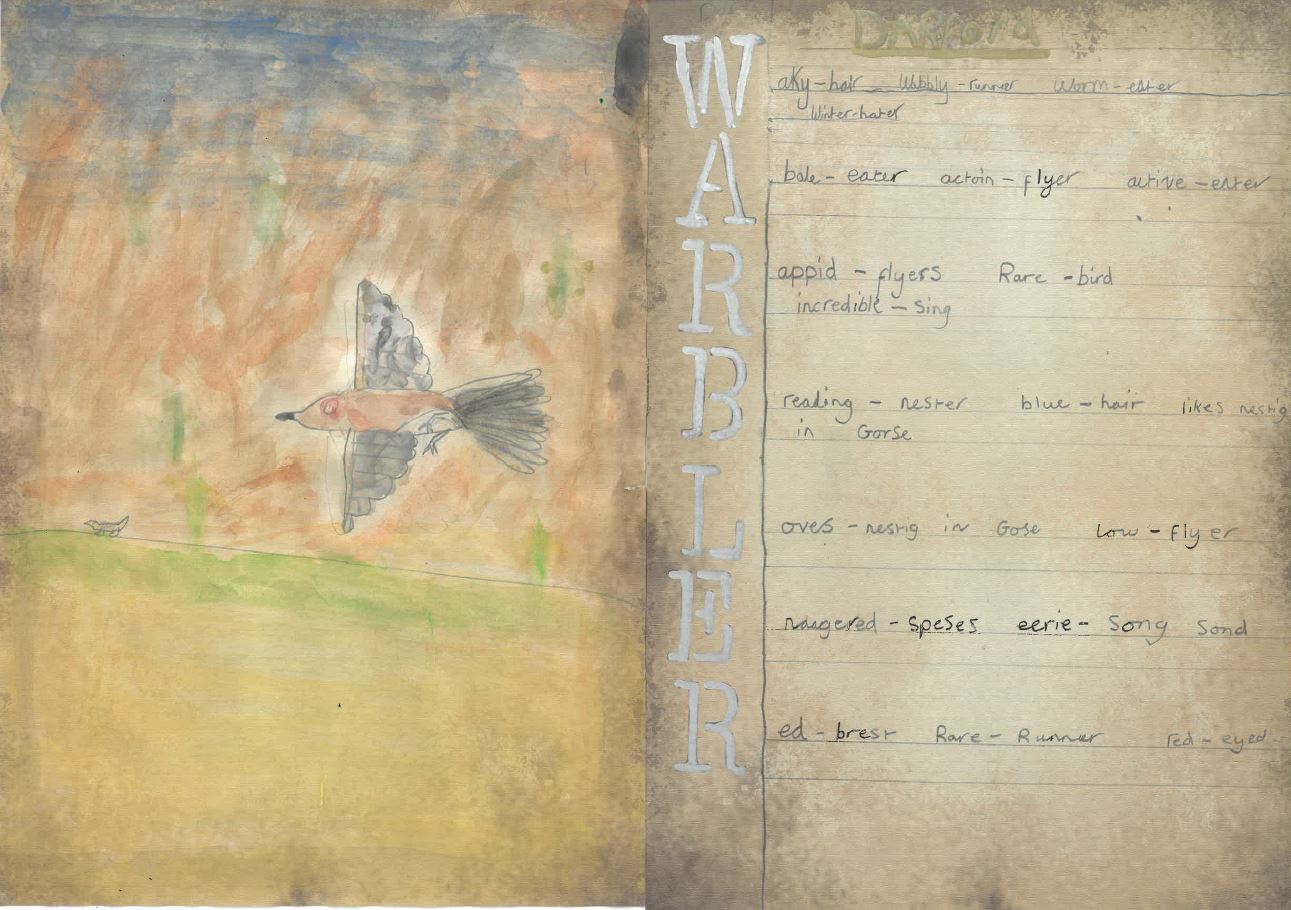 DARford
W aky-hair - Wobbly - runner Worm-eater
Winter-hater
A bale - eater actoin - flyer active - eater
R appid - flyers Rare - bird
incredible - Sing
B reading - nester blue - hair likes nestig
in Gorse
L oves - nestig in Gose Low - flyer
E naagered - SpeSes eerie - Song Sond
R ed - brest Rare - Runner red - eyed